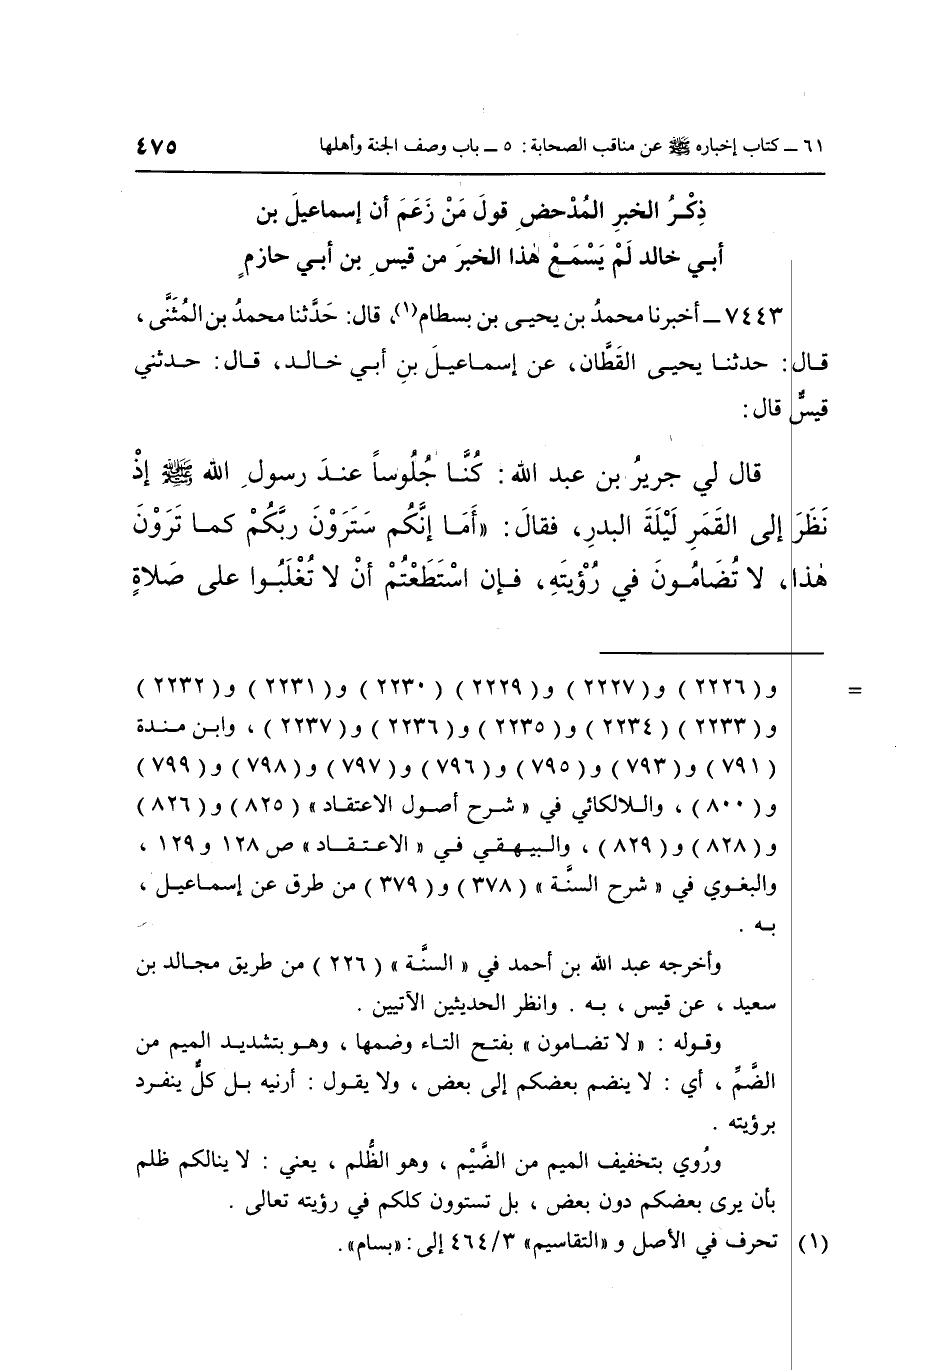 ٦١ ــ كتاب إخباره ﷺ عن مناقب الصحابة: ٥ ــ باب وصف الجنة وأهلها ٤٧٥
ذِكْرُ الخبرِ المُدْحضِ قولَ مَنْ زَعَمَ أن إسماعيلَ بن
أبي خالد لَمْ يَسْمَعْ هٰذا الخبرَ من قيسِ بن أبي حازمٍ
٧٤٤٣ ــ أخبرنا محمدُ بن يحيى بن بسطام(١)، قال: حَدَّثنا محمدُ بن المُثَنَّى،
قال: حدثنا يحيى القَطَّان، عن إسماعيلَ بنِ أبي خالد، قال: حدثني
قيسٌ قال:
قال لي جريرُ بن عبد الله: كُنَّا جُلُوساً عندَ رسولِ الله ﷺ إذْ
نَظَرَ إلى القَمَرِ لَيْلَةَ البدرِ، فقالَ: «أَمَا إنَّكُم سَتَرَوْنَ ربَّكُمْ كما تَرَوْنَ
هٰذا، لا تُضَامُونَ في رُؤْيتَهِ، فإن اسْتَطَعْتُمْ أنْ لا تُغْلَبُوا على صَلاةٍ
= و(٢٢٢٦) و(٢٢٢٧) و(٢٢٢٩) (٢٢٣٠) و(٢٢٣١) و(٢٢٣٢)
و(٢٢٣٣) (٢٢٣٤) و(٢٢٣٥) و(٢٢٣٦) و(٢٢٣٧)، وابن مندة
(٧٩١) و(٧٩٣) و(٧٩٥) و(٧٩٦) و(٧٩٧) و(٧٩٨) و(٧٩٩)
و(٨٠٠)، واللالكائي في «شرح أصول الاعتقاد» (٨٢٥) و(٨٢٦)
و(٨٢٨) و(٨٢٩)، والبيهقي في «الاعتقاد» ص ١٢٨ و١٢٩،
والبغوي في «شرح السنَّة» (٣٧٨) و(٣٧٩) من طرق عن إسماعيل،
به.
وأخرجه عبد الله بن أحمد في «السنَّة» (٢٢٦) من طريق مجالد بن
سعيد، عن قيس، به. وانظر الحديثين الآتيين.
وقوله: «لا تضامون» بفتح التاء وضمها، وهو بتشديد الميم من
الضَّمِّ، أي: لا ينضم بعضكم إلى بعض، ولا يقول: أرنيه بل كلٌّ ينفرد
برؤيته.
ورُوي بتخفيف الميم من الضَّيْم، وهو الظُّلم، يعني: لا ينالكم ظلم
بأن يرى بعضكم دون بعض، بل تستوون كلكم في رؤيته تعالى.
(١) تحرف في الأصل و«التقاسيم» ٤٦٤/٣ إلى: «بسام».